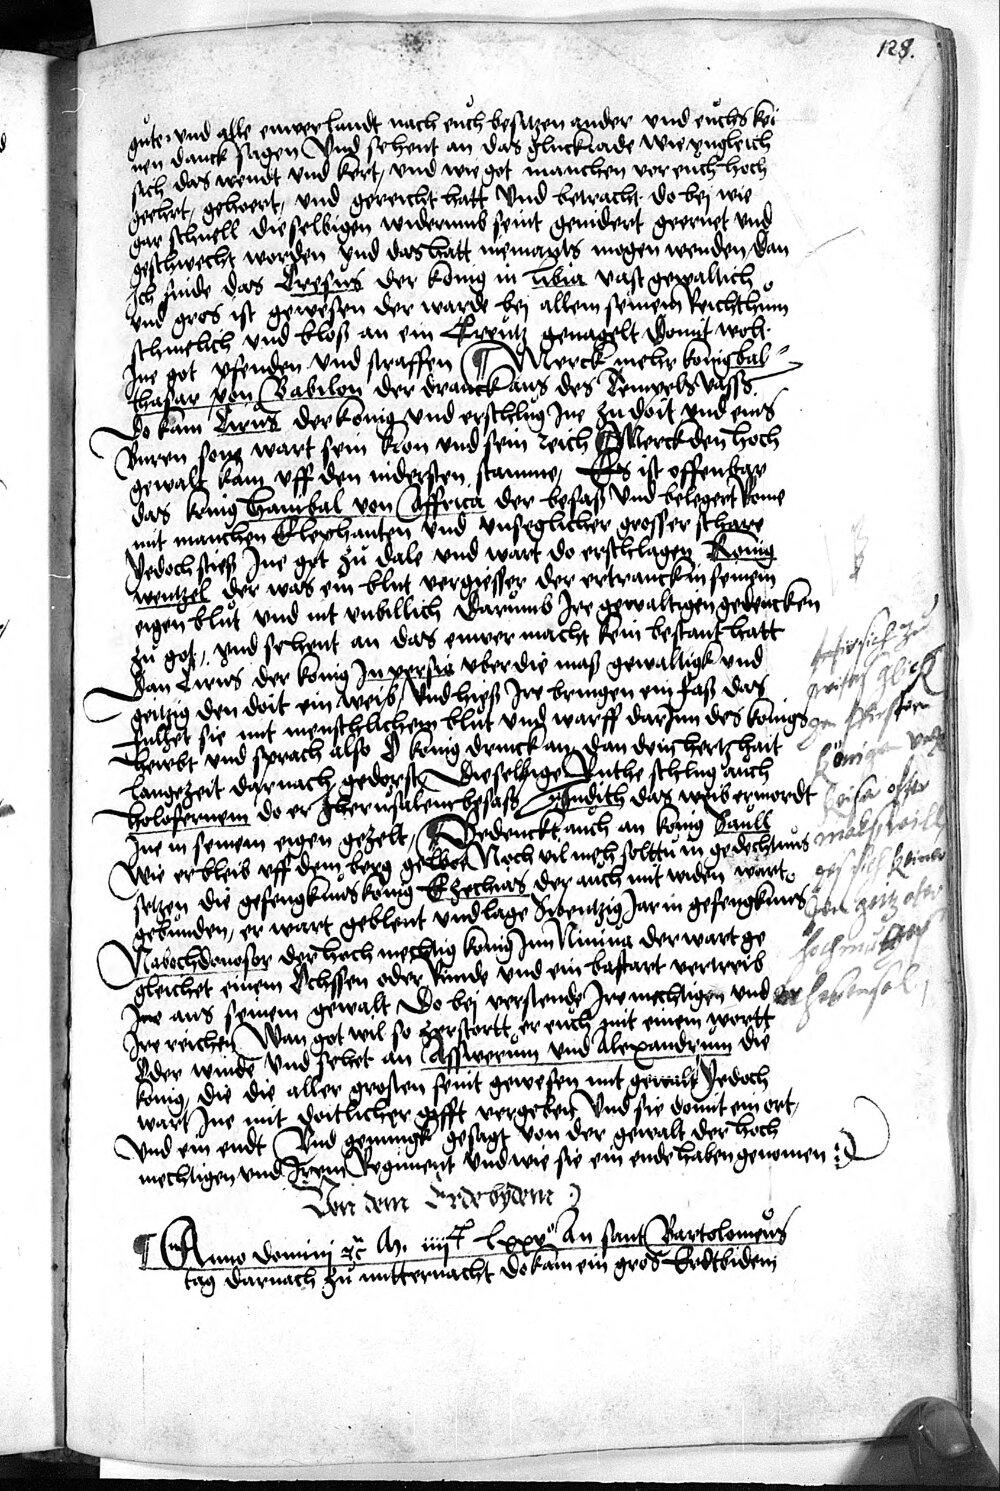 128.
gúte, vnd alle ewer landt nach euch besitzen ander vnd euchs kei
nen danck sagen Vnd sehent an das gluckrade wie vngleich
sich das wendt vnd kert, vnd wie got manchen vor euch hoch
geehrt, gehoert, vnd gereicht hatt Vnd betracht do bej wie
gar schnell dieselbigen widerumb seint genidert geernet vnd
geschwecht worden vnd das hatt niemants mogen wenden, Dan
Ich finde das Cresus der konig in libia vast gewaltich
vnd gros ist gewesen der warde bej allem seinem Reichthům
schmelich vnd bloß an ein Creutz genagelt Domit wolt
Ine got pfenden vnd straffen Merck mehr konig bal
thasar von Babilon der dranck aus des Tempels vasß
Do kam Cirus der konig vnd erschlug Ine zu doit vnd eins
Buren sone wart sein kron vnd sein reich Merck den hoch
gewalt kam vff den nidersten stamme, Es ist offenbar
das konig Hanibal von Affrica der besaß vnd belegert Rome
mit manchen Elephanten vnd vnseglicher grosser schare
Yedoch stieß Ine got zů dale vnd wart do erschlagen Konig
wentzel der was ein blut vergiesser der ertranck in seinem
eigen blůt vnd nit vnbillich Darumb Ire gewaltigen gedencken
zů got, vnd sehent an das ewer macht kein bestant hatt
Dan Cirus der konig In persia vber die maß gewaltigk vnd
geitzig den doit ein weib, vnd hieß Ire bringen ein faß das
fullet sie mit menschlichem blůt vnd warff darjnn des konigs
hewbt vnd sprach also O konig drinck an dan dein hertz hait
lange zeit darnach gedorst, Dieselbige Ruthe schlug auch
Holofernem do er Jherusalem besasß Judith das weib ermordt
Ine in seinem eigen gezelt, Gedenckt auch an konig Saull
Wie er bleib vff dem berg gelboe Noch vil meh solttu in gedechtnus
setzen die gefengknus konig Ezechias der auch mit widen wart
gebunden, er wart geblent vnd lage Zwentzig Jar in gefengknus
Nabochdonosor der hoch mechtig konig Inn Niniua der wart ge
gleichet einem Ochssen oder Rinde vnd ein bastart vertreib
Ine aus seinem gewalt Do bej verstende Ire mechtigen vnd
Ire reichen Wan got wil so zerstortt er euch mit einem wortt
Oder winde Vnd sehet an Asswerum vnd Alexandrum die
konig, die die aller grosten seint gewesen mit gewalt Yedoch
wart Ine mit doitlicher gifft vergeben Vnd sie domit ein ort,
Vnd ein endt Vnd genungk gesagt von der gewalt der hoch
mechtigen vnd Irem Regiment vnd wie sie ein ende haben genomen
Von dem Erdebydem
Anno domini M. iiijc lxxx An sant Bartolomeus
tag darnach zů mitternacht do kam ein gros Erdtbidem